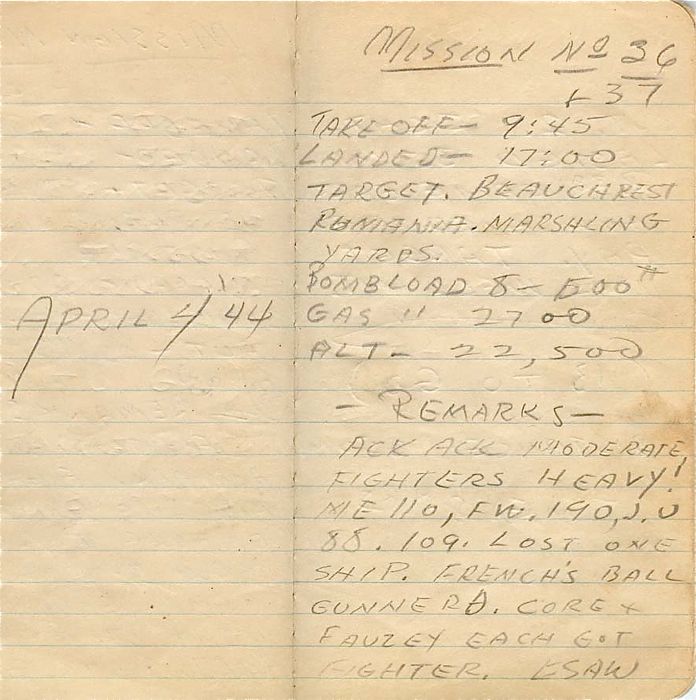 MISSION No 36
+ 37
TAKE OFF - 9:45
LANDED - 17:00
TARGET. BEAUCHREST
RUMANIA. MARSHLING
YARDS.
BOMBLOAD 8 - 500#
APRIL 4 '44
GAS " 2700
ALT - 22,500
- REMARKS -
ACK ACK MODERATE,
FIGHTERS HEAVY!
ME 110, FW. 190, J.U
88. 109. LOST ONE
SHIP. FRENCH'S BALL
GUNNER. CORE +
FAUZEY EACH GOT
FIGHTER.